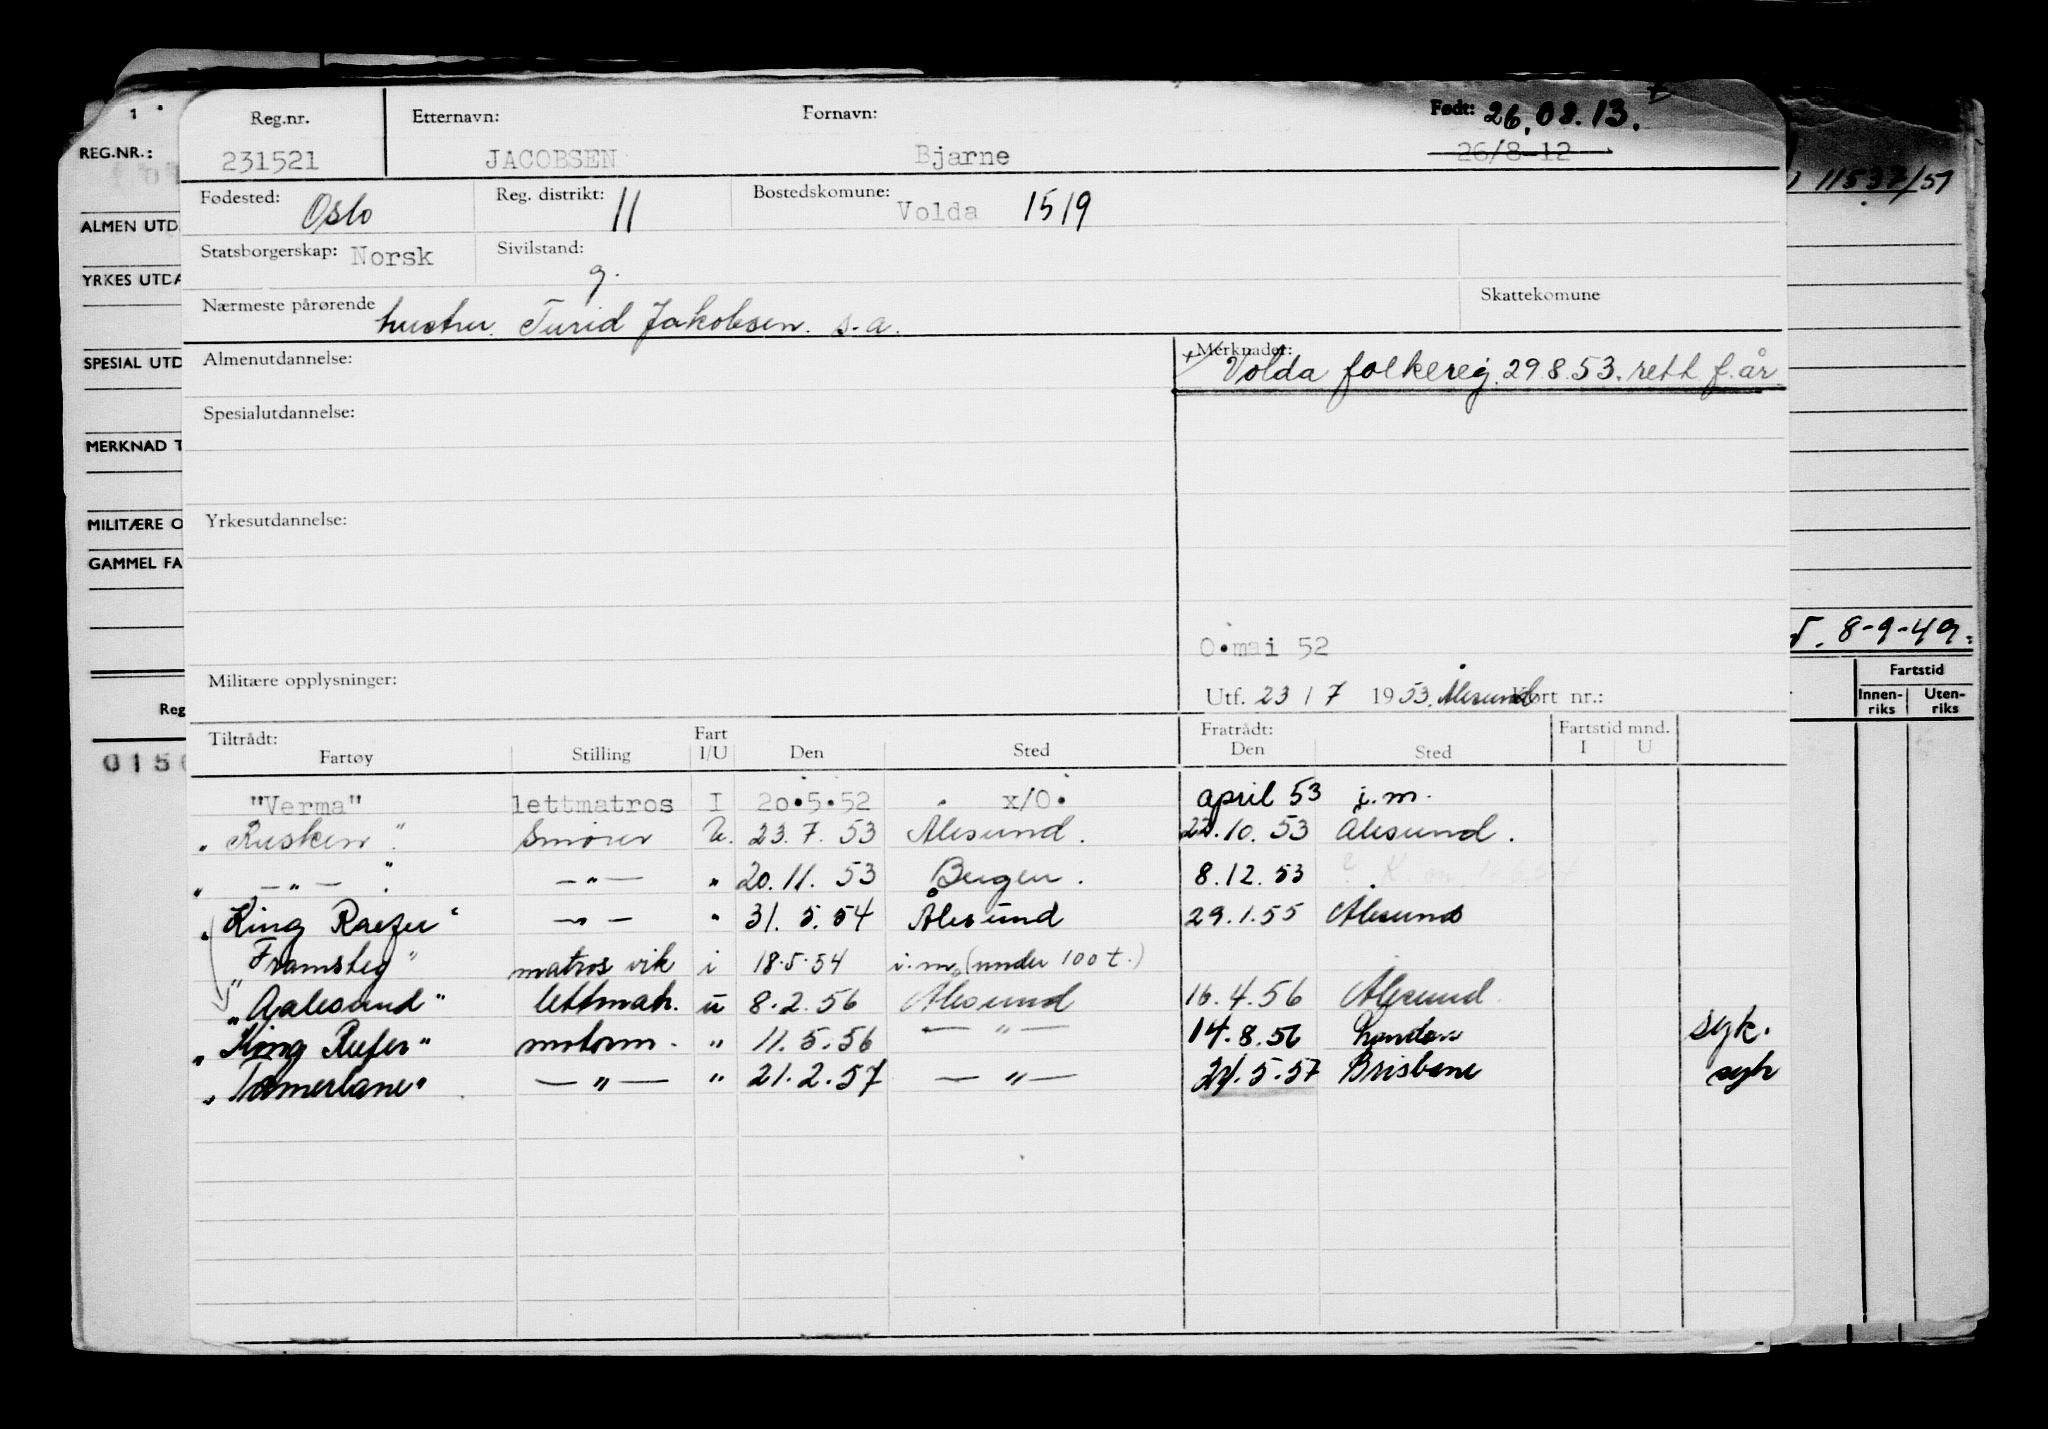 1
REG.NR.:
ALMEN UTD
YRKES UTDA
SPESIAL UTD
MERKNAD T
MILITÆRE O
GAMMEL FA
Reg
0156
Reg.nr. Etternavn: Fornavn: Født: 26.08.13. +
231521 JACOBSEN Bjarne 26/8-12
11537/51
Fødested: Oslo Reg. distrikt: 11 Bostedskomune: Volda 1519
Statsborgerskap: Norsk Sivilstand: g.
Nærmeste pårørende hustru Turid Jakobsen. s.a. Skattekomune
Almenutdannelse: Merknader:
+ Volda folkereg. 29.8.53. rett f. år.
Spesialutdannelse:
Yrkesutdannelse:
O.mai 52
8-9-49.
Militære opplysninger: Utf. 23/7 1953. Ålesund Kort nr.:
Fartstid
Innen-riks Uten-riks
Tiltrådt: Fart Fratrådt: Fartstid mnd.
Fartøy Stilling I/U Den Sted Den Sted I U
"Verma" lettmatros I 20.5.52 x/O. april 53 i.m.
"Rusken" Smører U. 23.7.53 Ålesund. 22.10.53 Ålesund.
" — " — " — " — " 20.11.53 Bergen. 8.12.53
"King Raefer" — " — " 31.5.54 Ålesund 29.1.55 Ålesund
"Framsteg" matros vik i 18.5.54 i.m. (under 100 t.)
"Aalesund" lettmatr. u 8.2.56 Ålesund 16.4.56 Ålesund
"King Reefer" motorm. " 11.5.56 — " — 14.8.56 London syk.
"Tamerlane" — " — " 21.2.57 — " — 24.5.57 Brisbane syk